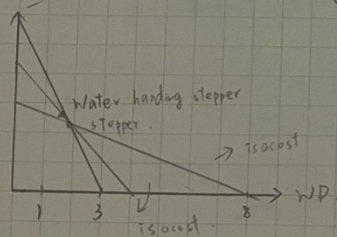 Water handing stepper
stepper.
→ isocost
1 3 8 WD
isocost.